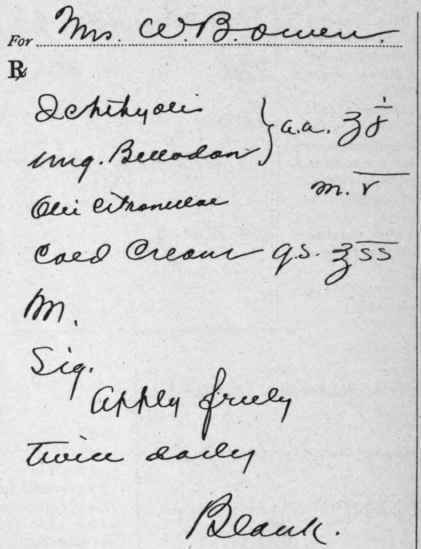 For Mrs. W. B. Owen.
℞
Ichthyoli
Ung. Belladon } a.a. ʒ j
Olei Citronellae m. v
Cold Cream q.s. ℥ ss
M.
Sig.
Apply freely
twice daily
Blank.